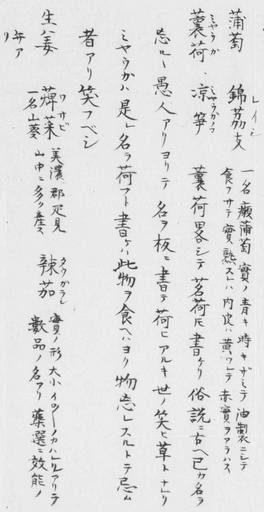 蒲萄 錦茘支 レイシ 一名癩蒲萄實ノ青キ時キザミテ油製シテ
食フサテ實熟スレハ内皮ハ黄ワレテ赤實ヲアラハス
蘘荷 ミヤウガ 凉笋 蘘荷畧シテ茗荷ト書ケリ俗説ニ古ヘ己カ名ヲ
忘ルヽ愚人アリヨリテ名ヲ板ニ書テ荷ヒアルキ世ノ笑ヒ草トナレリ
ミヤウガハ是レ名ヲ荷フト書ケハ此物ヲ食ヘハヨリ物忘レスルトテ忌ム
者アリ笑フベシ
生姜 ワサビ 一名山葵 美濃郡疋見
山中ニ多ク産ス 辣茄 タウガラシ 實ノ形大小イロ〳〵ノカハレルアリテ
數品ノ名アリ藥選ニ效能ノ